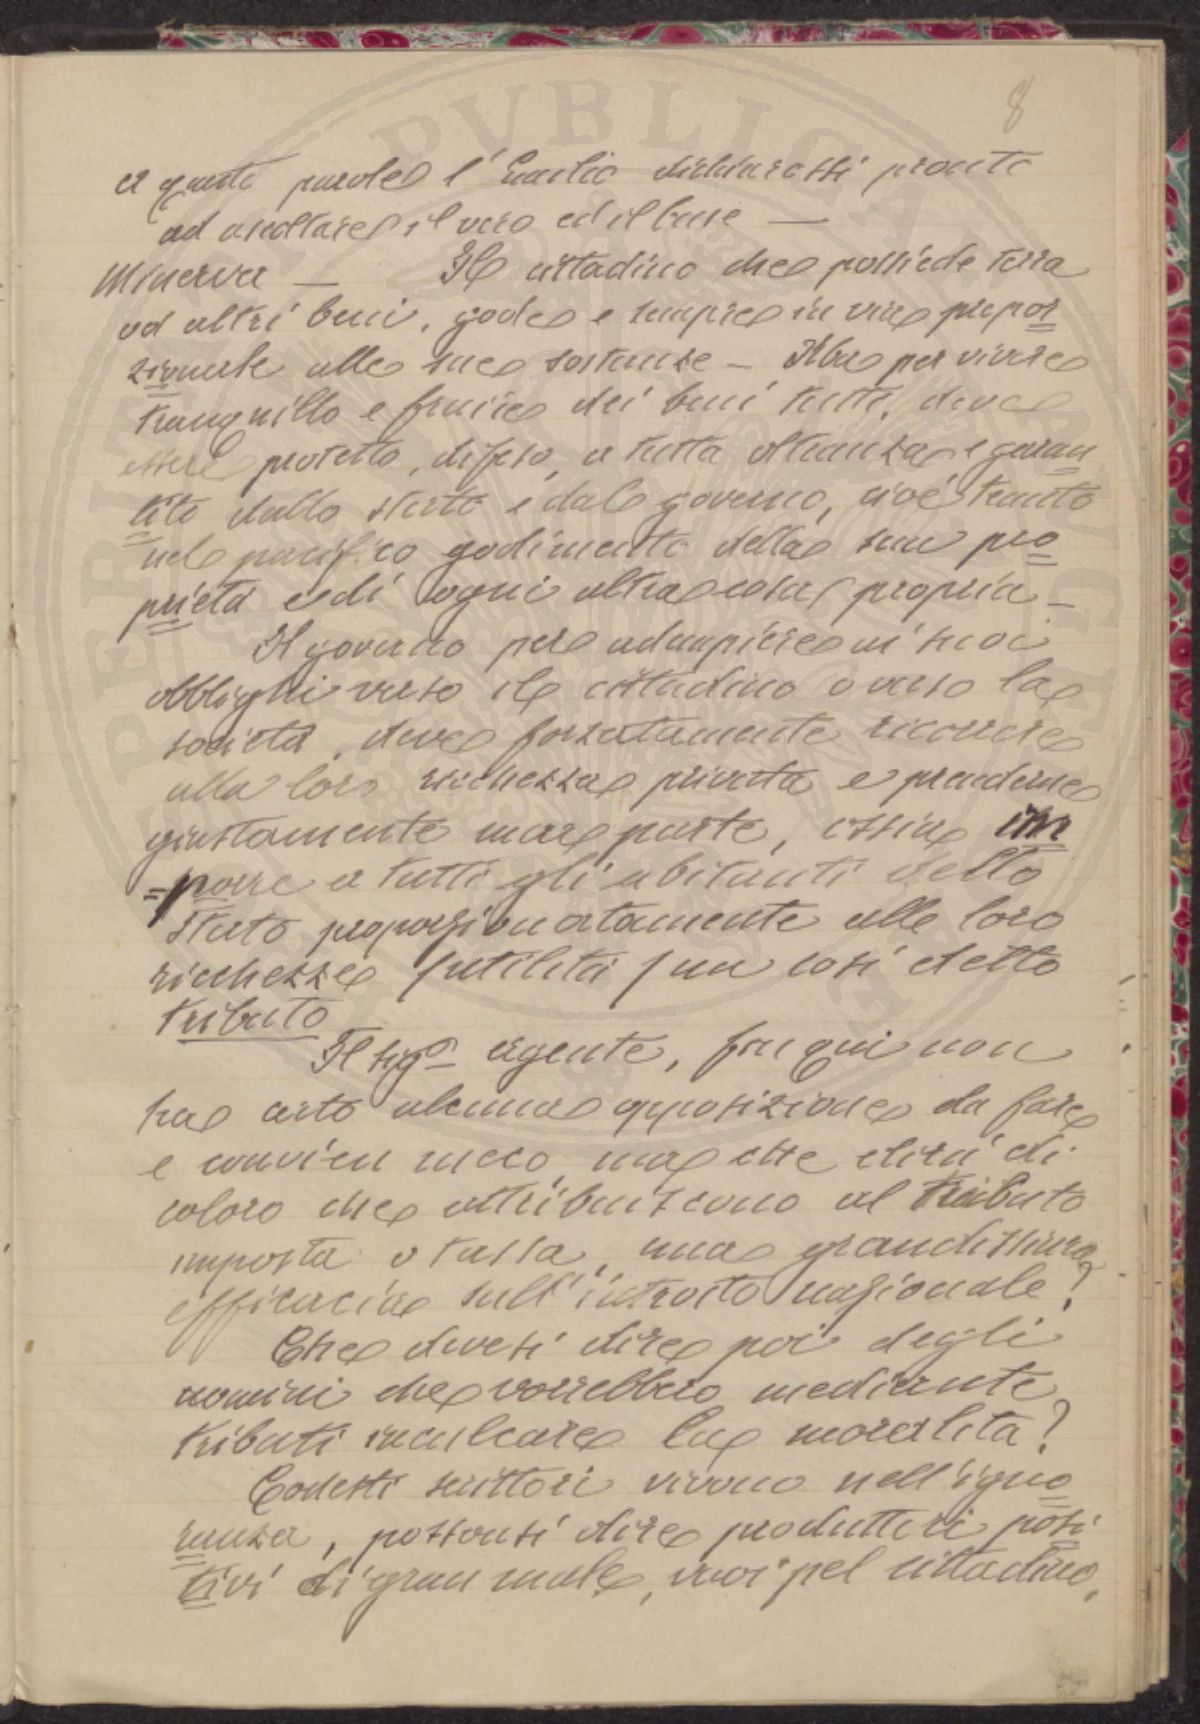 8
a queste parole l'Emilio dichiarossi pronto
ad ascoltare il vero ed il bene —
Minerva — Il cittadino che possiede terra
od altri beni, gode e sempre in via propor
zionale alle sue sostanze — Ma per vivere
tranquillo e fruire dei beni tutti, deve
essere protetto, difeso, a tutta oltranza e garan
tito dallo stato e dal governo, cioè tenuto
nel pacifico godimento della sua pro
prietà e di ogni altra cosa propria —
Il governo per adempiere ai suoi
obblighi verso il cittadino o verso la
società, deve forzatamente ricorrere
alla loro ricchezza privata e prenderne
giustamente una parte, ossia im
=porre a tutti gli abitanti dello
stato proporzionatamente alle loro
ricchezze (utilità) un così detto
tributo
Il sigr agente, fin qui non
ha certo alcuna opposizione da fare
e convien meco, ma che dirà di
coloro che attribuiscono al tributo
imposta o tassa, una grandissima
efficacia sull'introito nazionale?
Che devesi dire poi degli
uomini che vorrebbero mediante
tributi inculcare la moralità?
Codesti scrittori vivono nell'igno
ranza, possonsi dire produttori posi
tivi di gran male, vuoi pel cittadino,
PERITAT PVBLICAE AVGEN